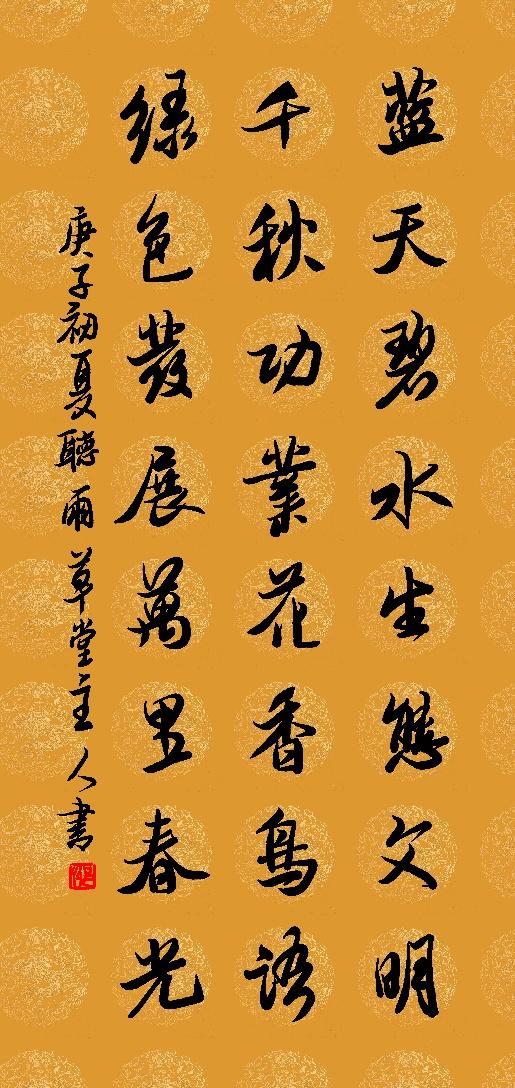 蓝天碧水生態文明
千秋功業花香鳥語
绿色發展萬里春光
庚子初夏聽雨草堂主人書